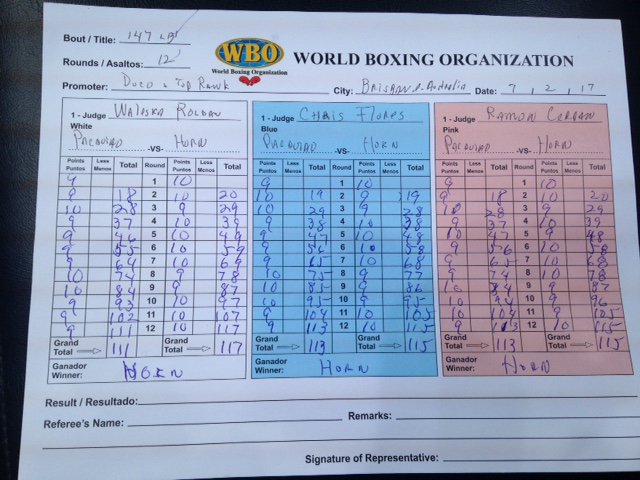 Bout / Title: 147 LB
Rounds / Asaltos: 12
WBO
World Boxing Organization
WORLD BOXING ORGANIZATION
Promoter: Duco & Top Rank City: Brisbane, Australia Date: 7, 2, 17
1 - Judge Waleska Roldan
White
Pacquiao -VS- Horn
Points Puntos Less Menos Total Round Points Puntos Less Menos Total
9 1 10
9 18 2 10 20
10 28 3 9 29
9 37 4 10 39
9 46 5 10 49
9 55 6 10 59
9 64 7 10 69
10 74 8 9 78
10 84 9 9 87
9 93 10 10 97
9 102 11 10 107
9 111 12 10 117
Grand Total 111 Grand Total 117
Ganador Winner: HORN
1 - Judge Chris Flores
Blue
Pacquiao -VS- Horn
Points Puntos Less Menos Total Round Points Puntos Less Menos Total
9 1 10
10 19 2 9 19
10 29 3 9 28
9 38 4 10 38
9 47 5 10 48
9 56 6 10 58
9 65 7 10 68
10 75 8 9 77
10 85 9 9 86
10 95 10 9 95
9 104 11 10 105
9 113 12 10 115
Grand Total 113 Grand Total 115
Ganador Winner: HORN
1 - Judge Ramon Cerdan
Pink
Pacquiao -VS- Horn
Points Puntos Less Menos Total Round Points Puntos Less Menos Total
9 1 10
9 18 2 10 20
10 28 3 9 29
9 37 4 10 39
10 47 5 9 48
9 56 6 10 58
9 65 7 10 68
9 74 8 10 78
10 84 9 9 87
10 94 10 9 96
10 104 11 9 105
9 113 12 10 115
Grand Total 113 Grand Total 115
Ganador Winner: HORN
Result / Resultado:
Referee's Name: Remarks:
Signature of Representative: